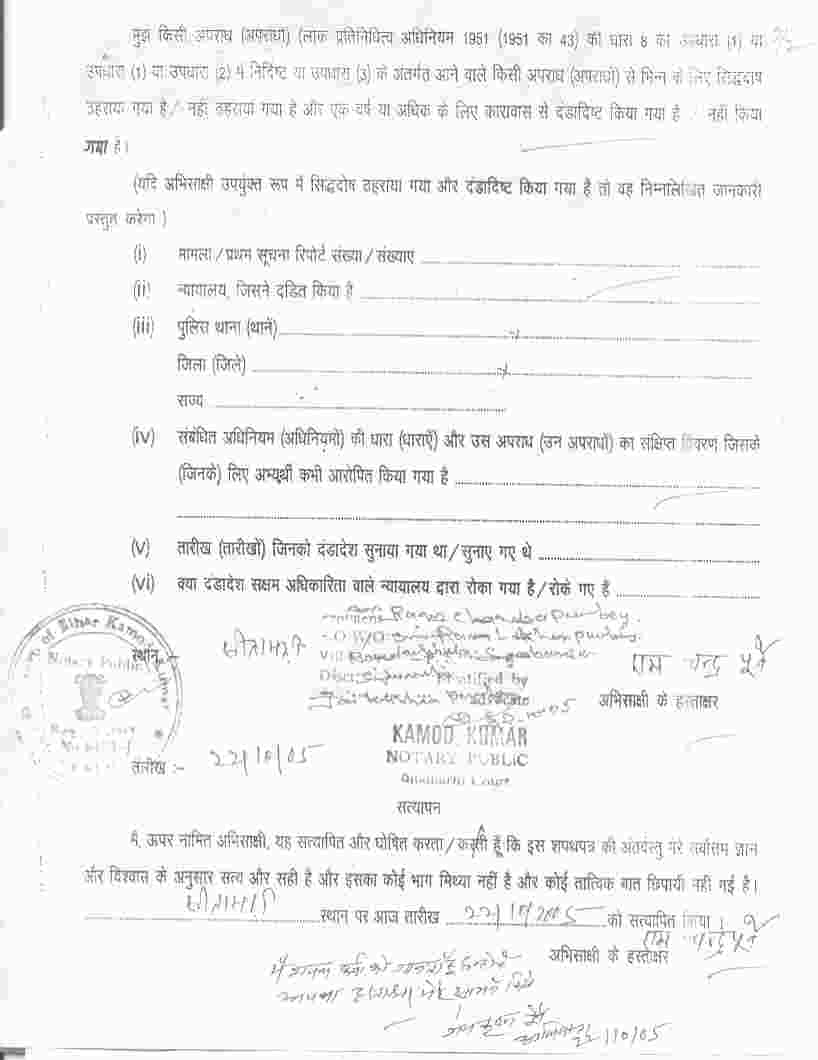 मुझे किसी अपराध (अपराधों) (लोक प्रतिनिधित्व अधिनियम 1951 (1951 का 43) की धारा 8 की उपधारा (1) या
उपधारा (1) या उपधारा (2) में निर्दिष्ट या उपधारा (3) के अंतर्गत आने वाले किसी अपराध (अपराधों) से भिन्न के लिए सिद्धदोष
ठहराया गया है / नहीं ठहराया गया है और एक वर्ष या अधिक के लिए कारावास से दंडादिष्ट किया गया है / नहीं किया
गया है।
(यदि अभिसाक्षी उपर्युक्त रूप में सिद्धदोष ठहराया गया और दंडादिष्ट किया गया है तो वह निम्नलिखित जानकारी
प्रस्तुत करेगा )
(i) मामला / प्रथम सूचना रिपोर्ट संख्या / संख्याएं
(ii) न्यायालय, जिसने दंडित किया है
(iii) पुलिस थाना (थानें)
जिला (जिले)
राज्य
(iv) संबंधित अधिनियम (अधिनियमों) की धारा (धाराएँ) और उस अपराध (उन अपराधों) का संक्षिप्त विवरण जिसके
(जिनके) लिए अभ्यर्थी कभी आरोपित किया गया है
(v) तारीख (तारीखों) जिनको दंडादेश सुनाया गया था / सुनाए गए थे
(vi) क्या दंडादेश सक्षम अधिकारिता वाले न्यायालय द्वारा रोका गया है / रोके गए हैं
Notary Public
स्थान :- सीतामढ़ी
Ram Chandra Purbey
Identified by
राम चन्द्र पूर्वे
अभिसाक्षी के हस्ताक्षर
KAMOD KUMAR
NOTARY PUBLIC
तारीख :- 22/10/05
सत्यापन
मैं, ऊपर नामित अभिसाक्षी, यह सत्यापित और घोषित करता / करती हूँ कि इस शपथपत्र की अंतर्वस्तु मेरे सर्वोत्तम ज्ञान
और विश्वास के अनुसार सत्य और सही है और इसका कोई भाग मिथ्या नहीं है और कोई तात्विक बात छिपायी नहीं गई है।
सीतामढ़ी स्थान पर आज तारीख 22/10/2005 को सत्यापित किया।
राम चन्द्र पूर्वे
अभिसाक्षी के हस्ताक्षर